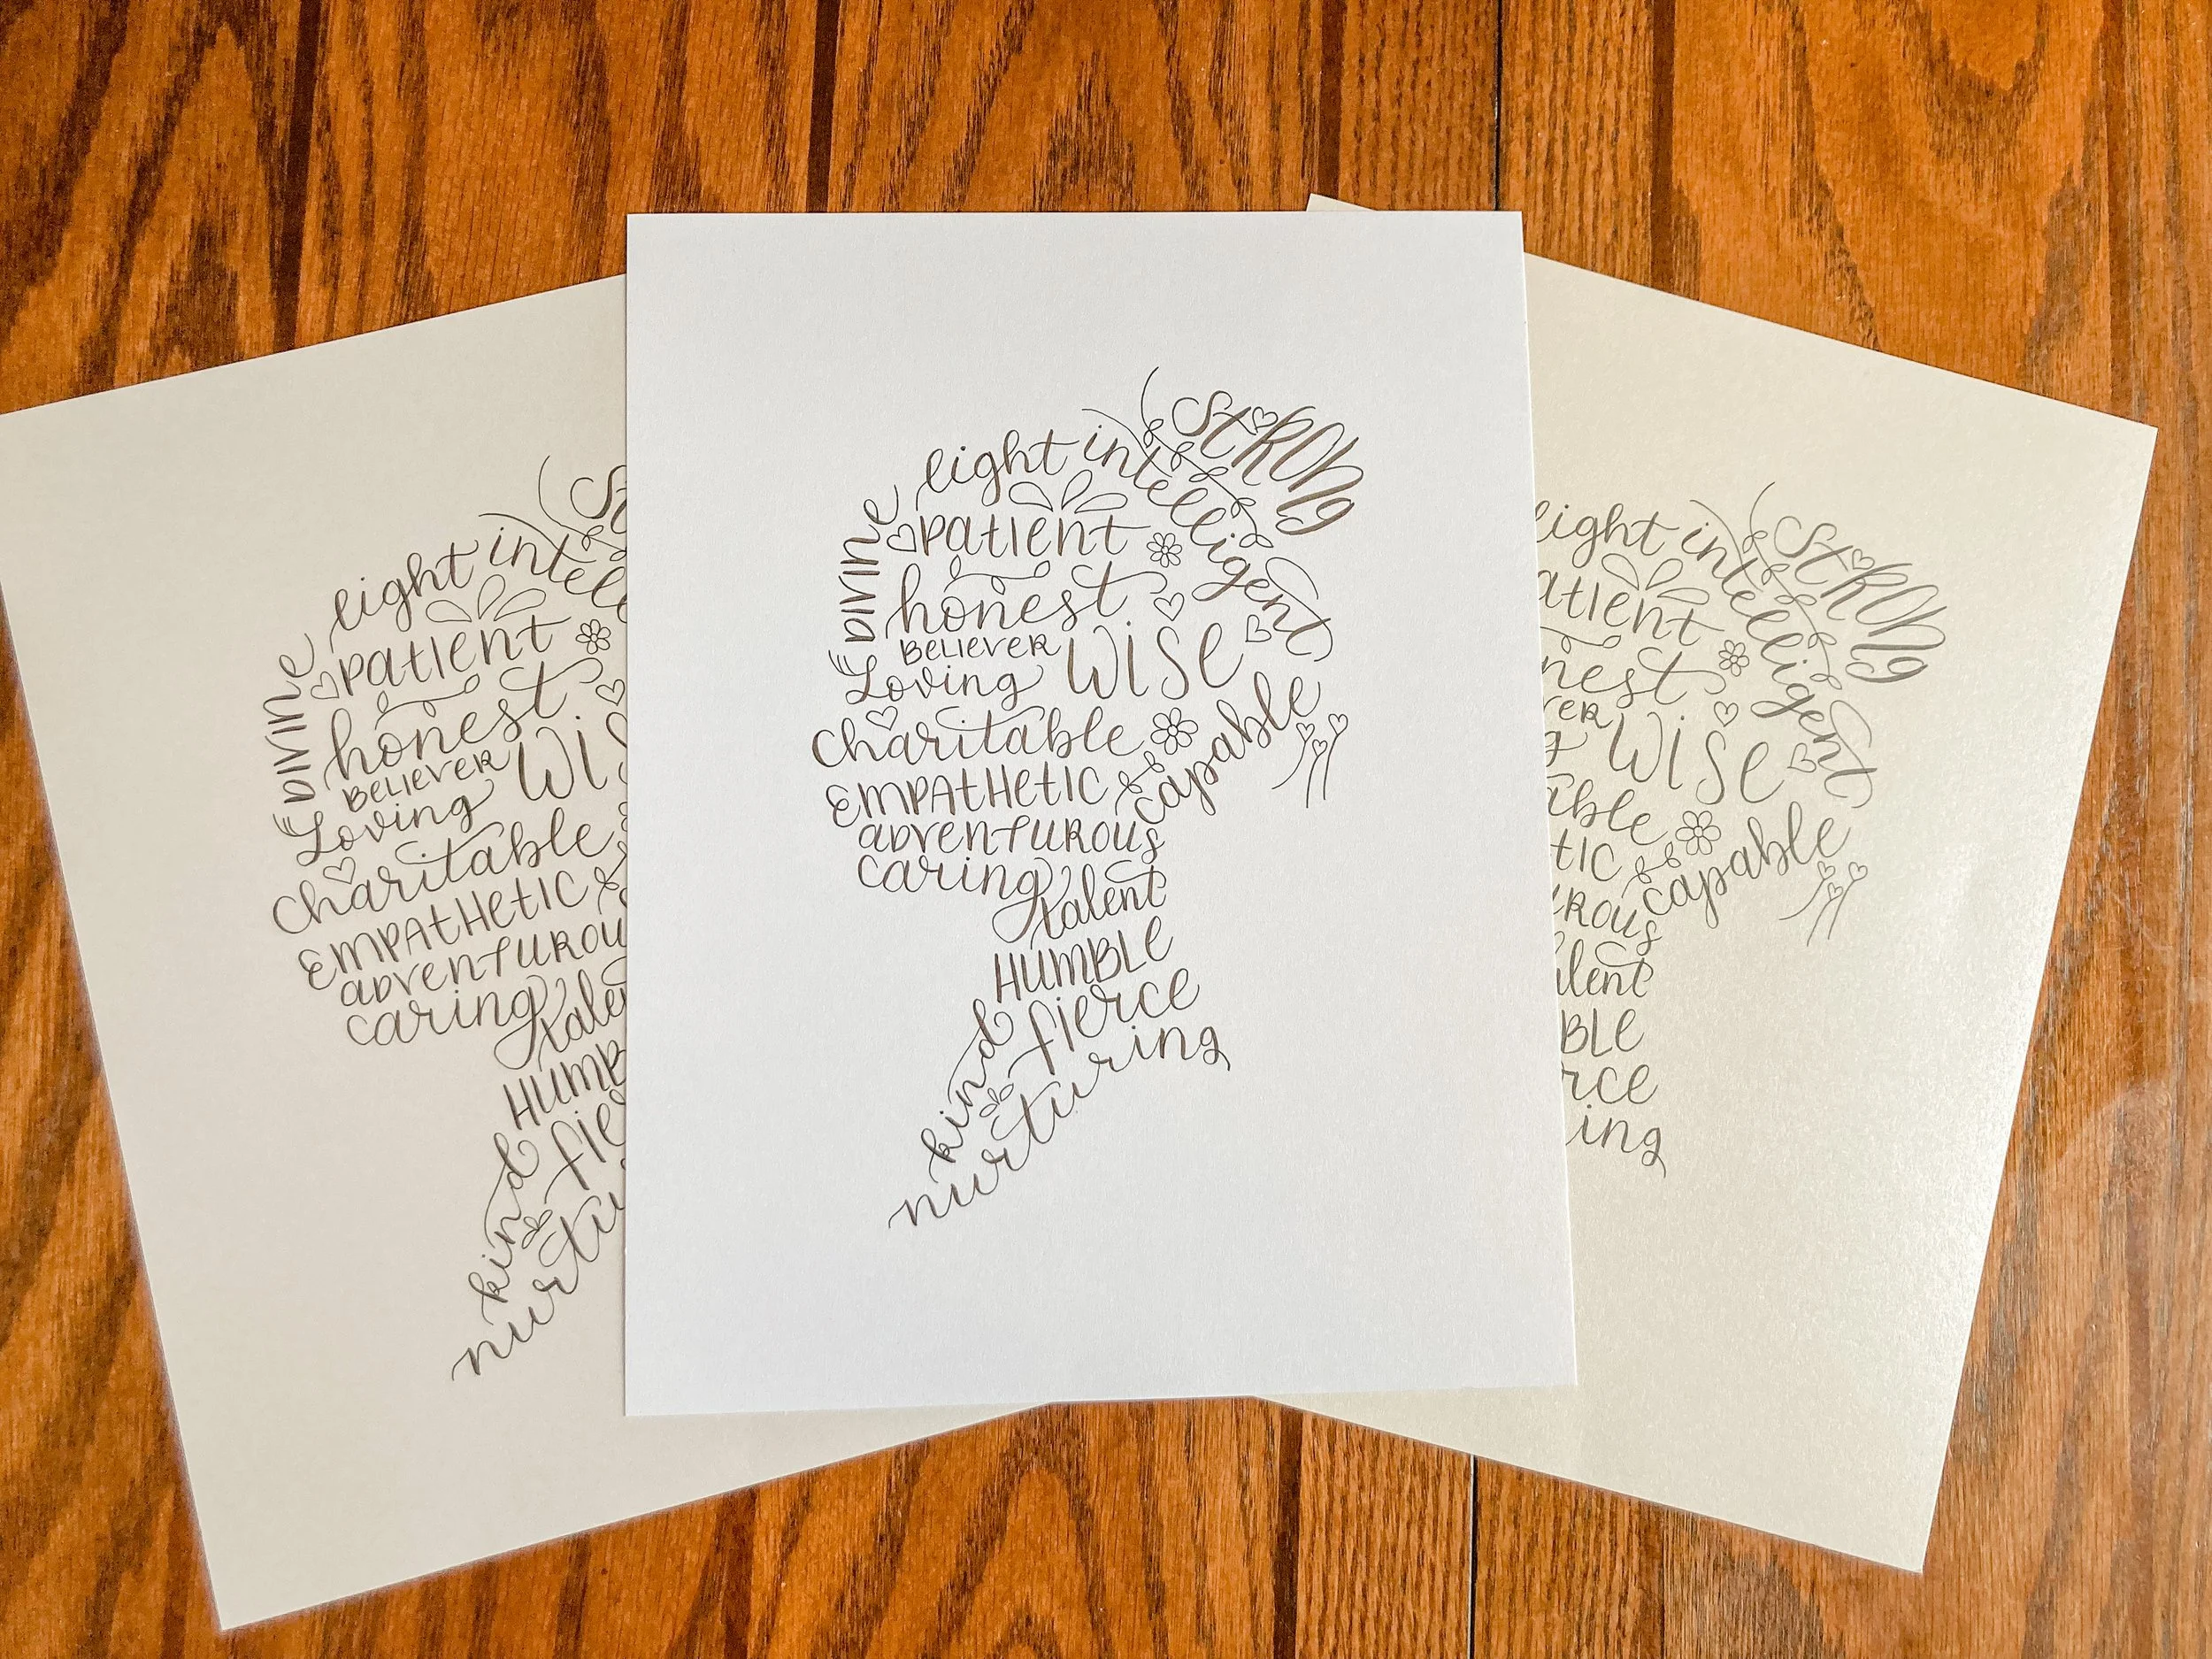 Strong
light intelligent
Divine
patient
honest
Believer
wise
Loving
charitable
capable
EMPATHETIC
adventurous
caring
talent
HUMBLE
kind
fierce
nurturing
St
light intelli
Divine
patient
honest
Believer
wis
Loving
charitable
EMPATHETIC
adventurou
caring
tale
HUMB
kind
fie
nurtu
Strong
light intelligent
atient
nest
ver
wise
g
able
capable
tic
urous
alent
BLE
rce
ing